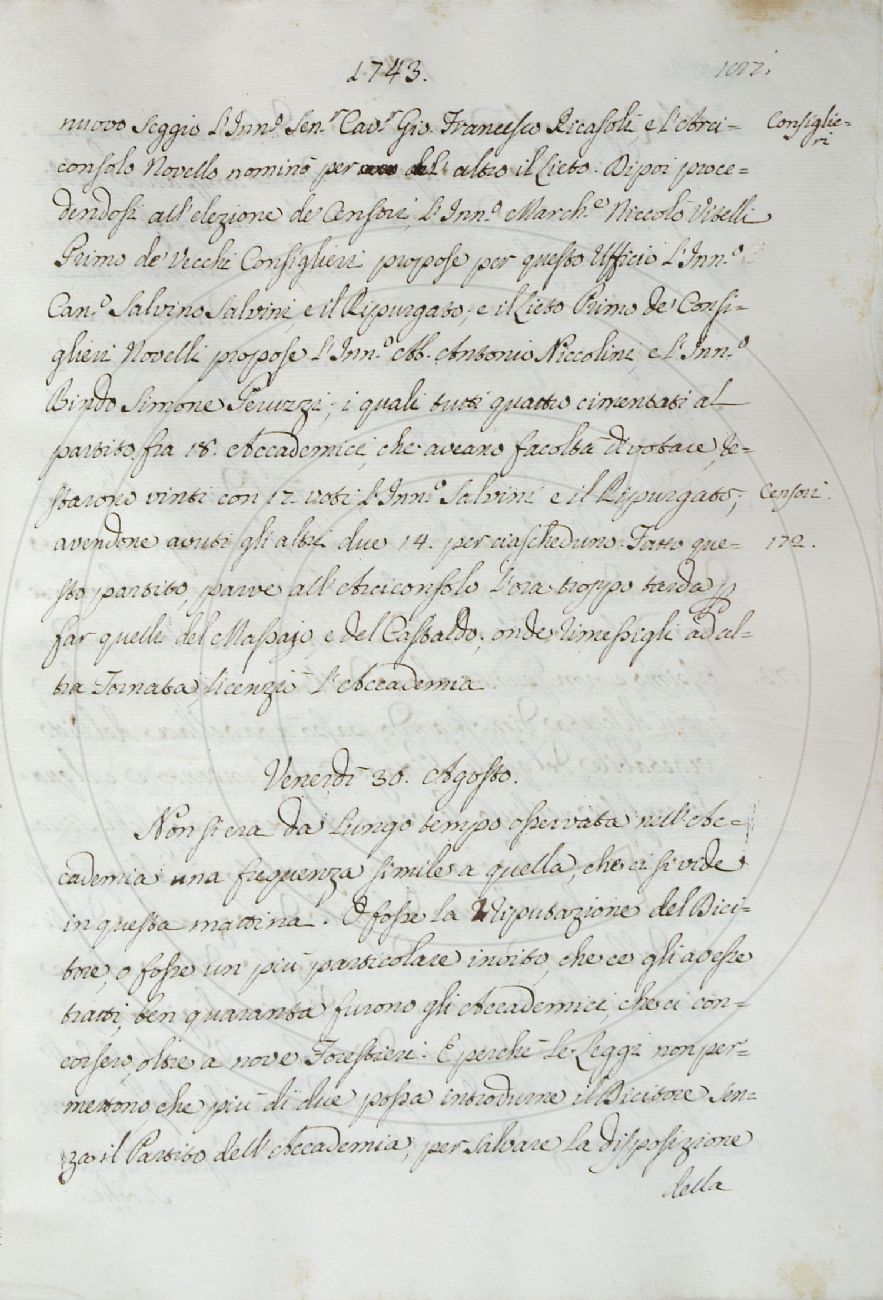 1743.
nuovo Seggio l'Inn.º Sen.r Cav.r Gio. Francesco Ricasoli, e l'Arci-
Consiglie-
ri
consolo Novello nominò per altro il Lieto. Dipoi proce-
dendosi all'elezione de' Censori, l'Inn.º March.e Niccolò Vitelli
Primo de' Vecchi Consiglieri propose per questo Uffizio l'Inn.º
Can.º Salvino Salvini, e il Ripurgato; e il Lieto Primo de' Consi-
glieri Novelli propose l'Inn.º Ab. Antonio Niccolini e l'Inn.º
Bindo Simone Peruzzi; i quali tutti quattro cimentati al
partito fra 18. Accademici, che aveano facoltà di votare, re-
starono vinti con 17 voti l'Inn.º Salvini e il Ripurgato;
Censori.
avendone avuti gli altri due 14. per ciascheduno. Fatto que-
172.
sto partito, parve all'Arciconsolo l'ora troppo tarda p
far quelli del Massajo e del Castaldo; onde rimessigli ad al-
tra Tornata, licenziò l'Accademia.
Venerdì 30. Agosto.
Non si era da lungo tempo osservata nell'Ac-
cademia una frequenza simile a quella, che ci si vide
in questa mattina. O fosse la Riputazione del Dici-
tore, o fosse un più particolare invito, che ce gli avesse
tratti, ben quaranta furono gli Accademici, che ci con-
corsero, oltre a nove Forestieri. E perchè le Leggi non per-
mettono che più di due possa introdurne il Dicitore sen-
za il Partito dell'Accademia, per salvare la disposizione
della